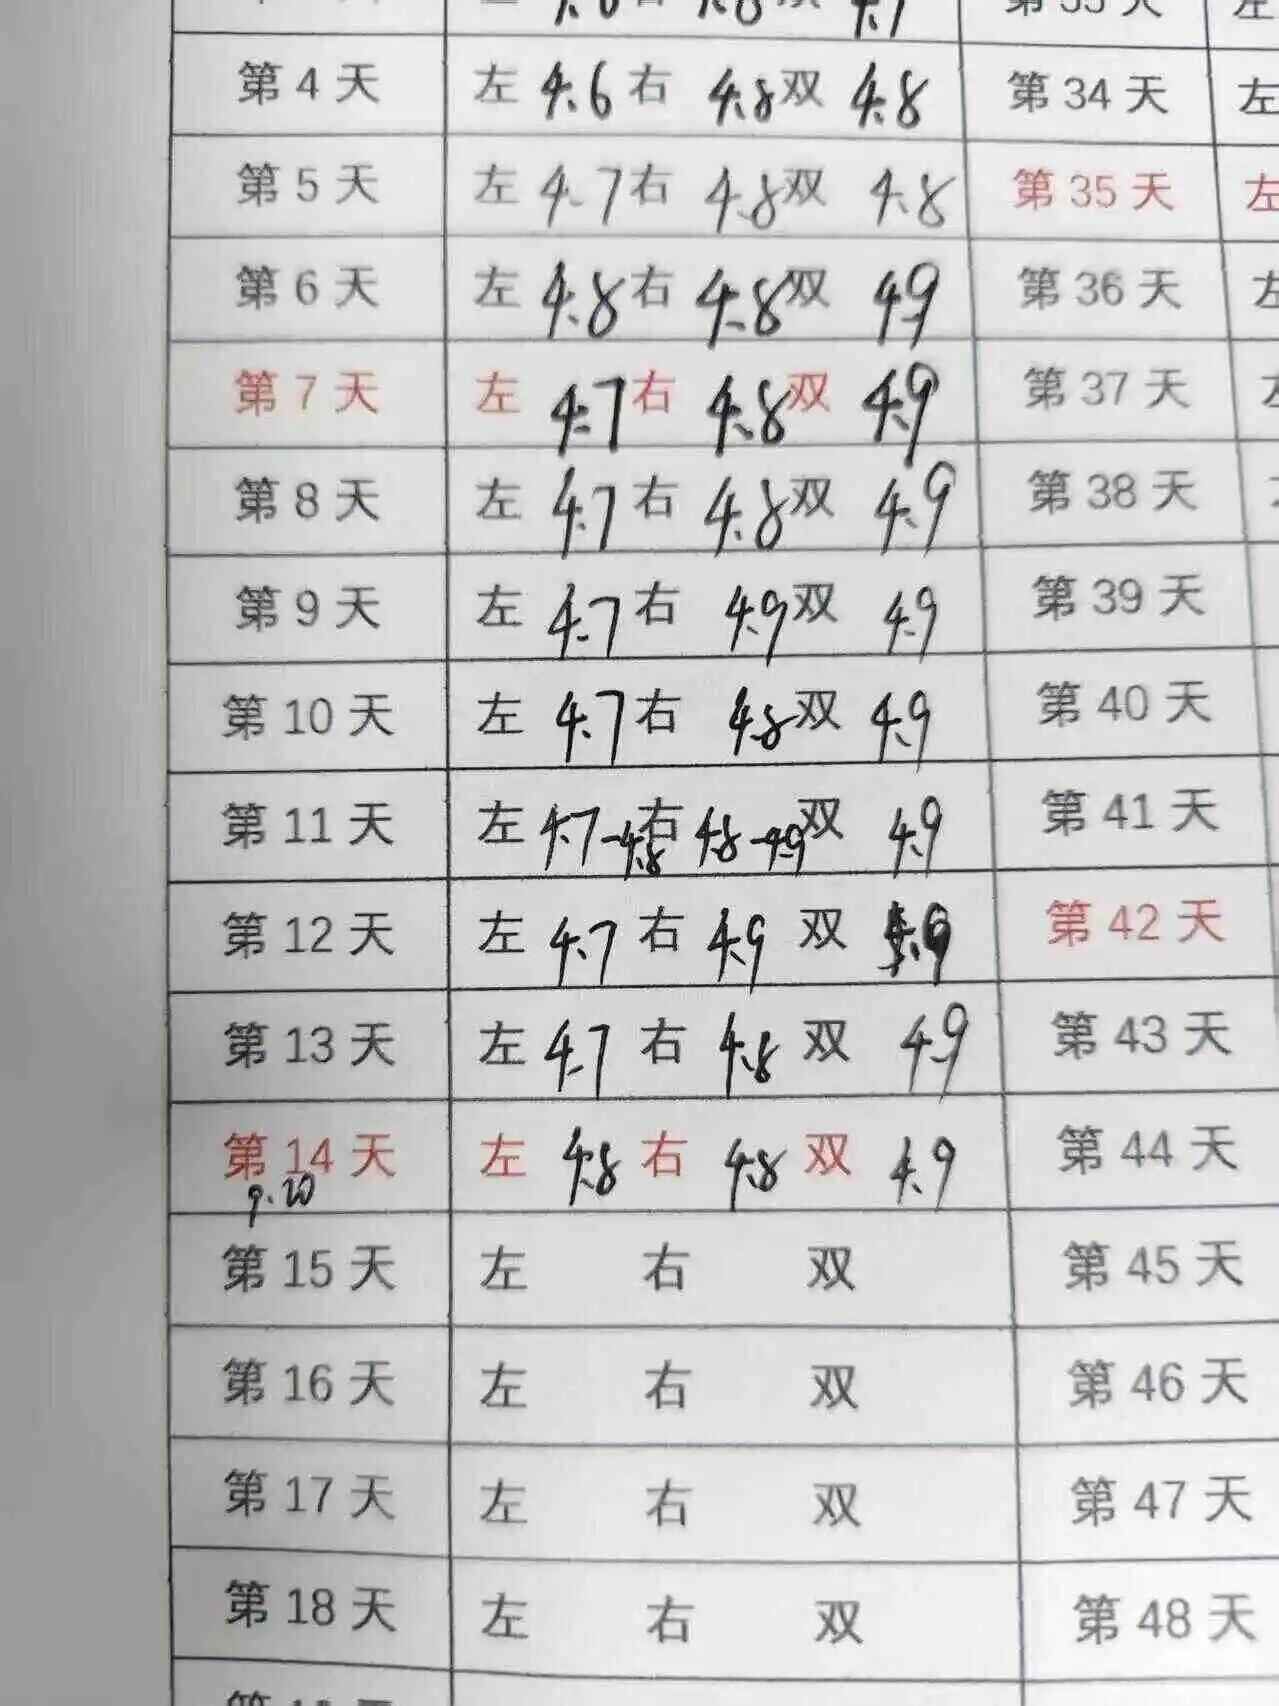 第4天 左 4.6 右 4.8 双 4.8 第34天 左
第5天 左 4.7 右 4.8 双 4.8 第35天 左
第6天 左 4.8 右 4.8 双 4.9 第36天 左
第7天 左 4.7 右 4.8 双 4.9 第37天
第8天 左 4.7 右 4.8 双 4.9 第38天
第9天 左 4.7 右 4.9 双 4.9 第39天
第10天 左 4.7 右 4.8 双 4.9 第40天
第11天 左 4.7-4.8 右 4.8-4.9 双 4.9 第41天
第12天 左 4.7 右 4.9 双 第42天
第13天 左 4.7 右 4.8 双 4.9 第43天
第14天 左 4.8 右 4.8 双 4.9 第44天
9.20
第15天 左 右 双 第45天
第16天 左 右 双 第46天
第17天 左 右 双 第47天
第18天 左 右 双 第48天